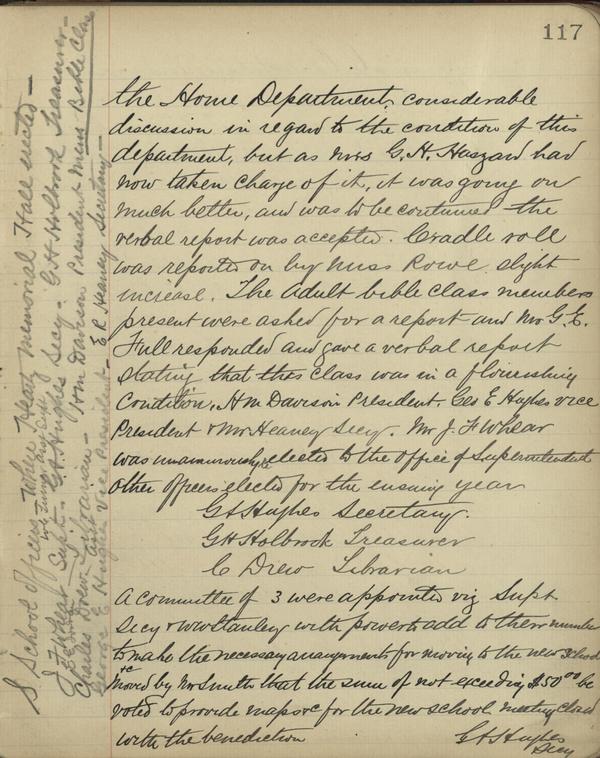 117
the Home Department, considerable
discussion in regard to the condition of this
department, but as Mrs G. H. Haszard had
now taken charge of it, it was going on
much better, and was to be continued the
verbal report was accepted. Cradle roll
was reported on by Miss Rowe slight
increase. The Adult bible class members
present were asked for a report and Mr G. E.
Full responded and gave a verbal report
stating that this class was in a flourishing
Condition, H M Davison President. Geo E Hughes vice
President & Mr Heaney Secy. Mr J. F Whear
was unanimously elected to the Office of Superintendent
Other officers elected for the ensuing year
G S Hughes Secretary.
G H Holbrook Treasurer
C Drew Librarian
A Committee of 3 were appointed viz Supt
Secy & WW Stanley with power to add to their number
to make the necessary arrangements for moving to the new School
&c
Moved by Mr Smith that the sum of not exceeding $50 00 be
voted to provide maps &c for the new school meeting closed
with the benediction
G S Hughes
Secy
S School Officers When Heartz Memorial Hall elected —
J F Whear Supt. G S Hughes Secy. G H Holbrook Treasurer —
Charles Drew Librarian — H M Davison President Mens Bible Class
George E Hughes Vice President — E R Heaney Secretary —